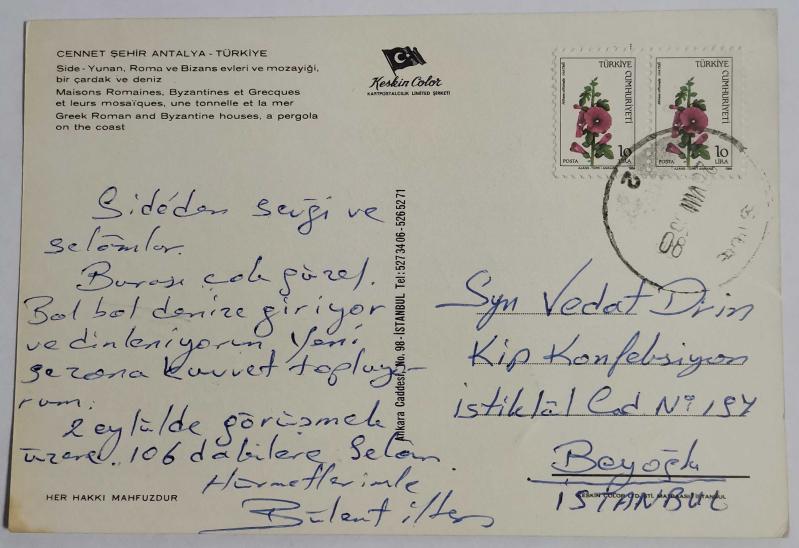 CENNET ŞEHİR ANTALYA - TÜRKİYE
Side - Yunan, Roma ve Bizans evleri ve mozayiği,
bir çardak ve deniz
Maisons Romaines, Byzantines et Grecques
et leurs mosaïques, une tonnelle et la mer
Greek Roman and Byzantine houses, a pergola
on the coast
Keskin Color
KARTPOSTALCILIK LIMITED ŞİRKETİ
TÜRKİYE
CUMHURİYETİ
POSTA
10
LİRA
TÜRKİYE
CUMHURİYETİ
POSTA
10
LİRA
Side'den sevgi ve
selâmlar.
Burası çok güzel.
Bol bol denize giriyor
ve dinleniyorum. Yeni
sezona kuvvet topluyo-
rum.
2 eylülde görüşmek
üzere. 106 dakilere selâm
Hürmetlerimle
Bülent
Ankara Caddesi, No. 98 - İSTANBUL Tel: 527 34 06 - 526 52 71
Syn Vedat Dirin
Kip Konfeksiyon
İstiklâl Cad No: 197
Beyoğlu
İSTANBUL
HER HAKKI MAHFUZDUR
KESKİN COLOR LTD. ŞTİ. MATBAASI İSTANBUL